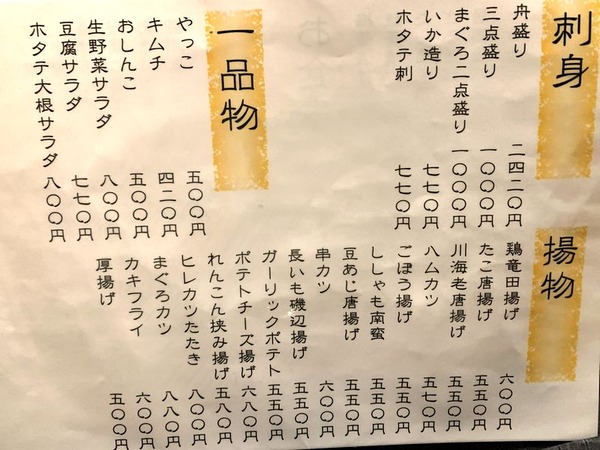 刺身
舟盛り 二四二〇円
三点盛り 一〇〇〇円
まぐろ二点盛り 一〇〇〇円
いか造り 七七〇円
ホタテ刺 七七〇円
一品物
やっこ 五〇〇円
キムチ 四二〇円
おしんこ 五〇〇円
生野菜サラダ 八〇〇円
豆腐サラダ 七七〇円
ホタテ大根サラダ 八〇〇円
揚物
鶏竜田揚げ 六〇〇円
たこ唐揚げ 五五〇円
川海老唐揚げ 五五〇円
ハムカツ 五七〇円
ごぼう揚げ 五五〇円
ししゃも南蛮 五五〇円
豆あじ唐揚げ 五五〇円
串カツ 六〇〇円
長いも磯辺揚げ 五五〇円
ガーリックポテト 五五〇円
ポテトチーズ揚げ 六八〇円
れんこん挟み揚げ 五八〇円
ヒレカツたたき 八〇〇円
まぐろカツ 八八〇円
カキフライ 六〇〇円
厚揚げ 五〇〇円